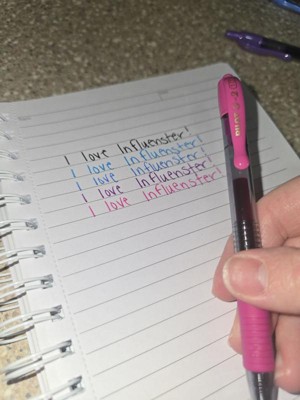 I love Influenster!
I love Influenster!
I love Influenster!
I love Influenster!
I love Influenster!
PILOT G-2